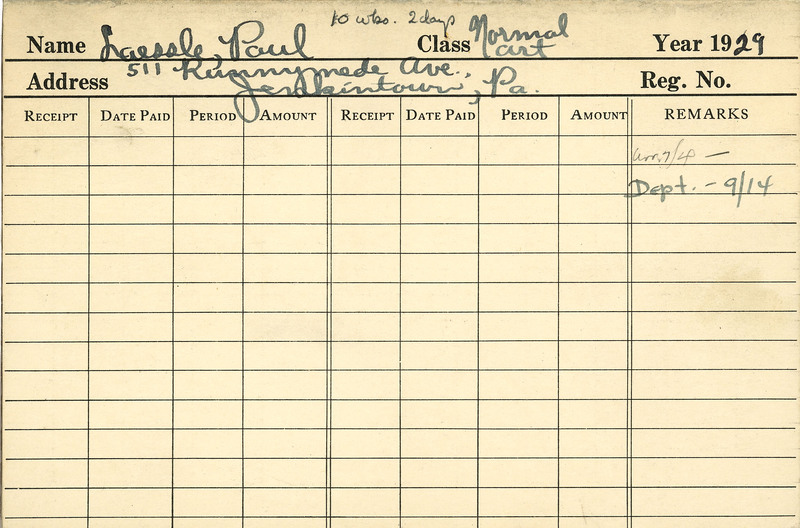 10 wks. 2 days
Name Laessle, Paul Class Normal Art Year 1929
Address 511 Runnymede Ave., Reg. No.
Jenkintown, Pa.
RECEIPT DATE PAID PERIOD AMOUNT RECEIPT DATE PAID PERIOD AMOUNT REMARKS
Arr. 7/4 —
Dept. - 9/14